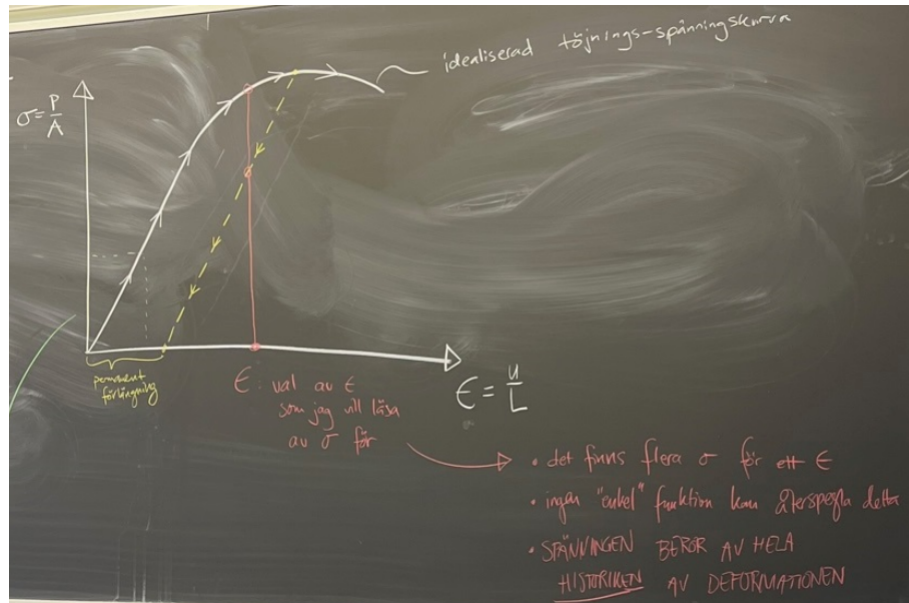 idealiserad töjnings-spänningskurva
σ = P/A
permanent
förlängning
ϵ: val av ϵ
som jag vill läsa
av σ för
ϵ = u/L
• det finns flera σ för ett ϵ
• ingen "enkel" funktion kan återspegla detta
• SPÄNNINGEN BEROR AV HELA
HISTORIKEN AV DEFORMATIONEN